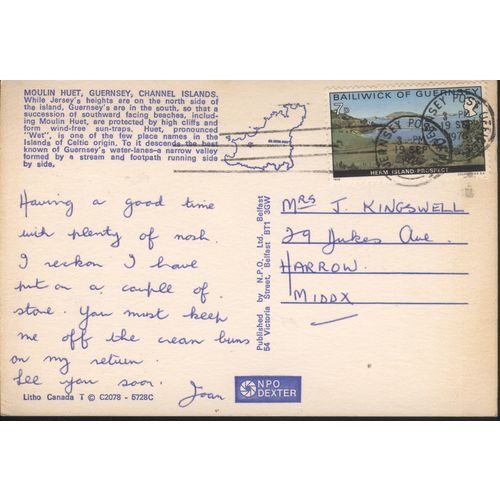 MOULIN HUET, GUERNSEY, CHANNEL ISLANDS.
While Jersey's heights are on the north side of
the island, Guernsey's are in the south, so that a
succession of southward facing beaches, includ-
ing Moulin Huet, are protected by high cliffs and
form wind-free sun-traps. Huet, pronounced
"Wet", is one of the few place names in the
Islands of Celtic origin. To it descends the best
known of Guernsey's water-lanes-a narrow valley
formed by a stream and footpath running side
by side.
Having a good time
with plenty of nosh.
I reckon I have
put on a couple of
stone. You must keep
me off the cream buns
on my return.
See you soon.
Joan
Litho Canada T © C2078 - 5728C
Published by N.P.O. Ltd., Belfast
54 Victoria Street, Belfast BT1 3GW
NPO
DEXTER
BAILIWICK OF GUERNSEY
7p
HERM ISLAND-PROSPECT
GUERNSEY POST
3 - PM
19 SEP
197
MRS J. KINGSWELL
29 Jukes Ave.
HARROW.
MIDDX